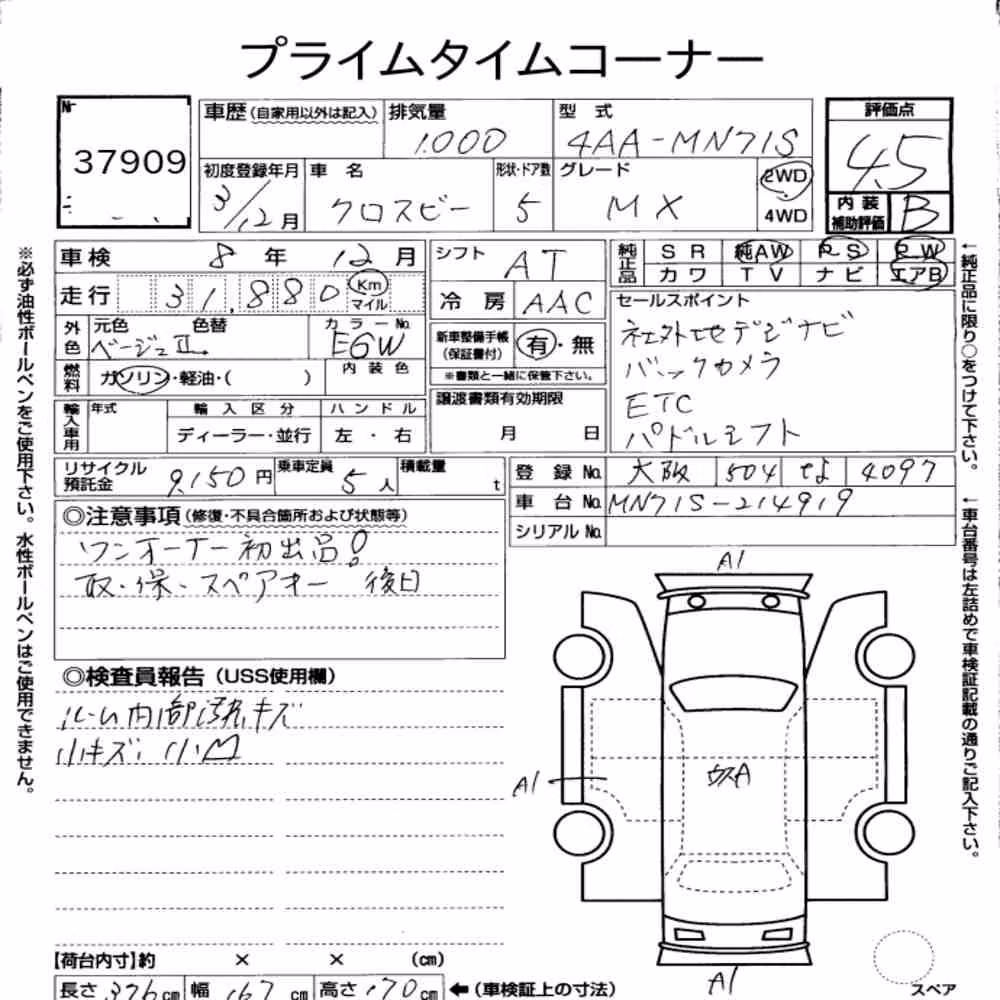 プライムタイムコーナー
№
37909
車歴(自家用以外は記入)
排気量
1.000
型 式
4AA-MN71S
評価点
4.5
内装補助評価
B
初度登録年月
3/12月
車 名
クロスビー
形状・ドア数
5
グレード
MX
2WD
4WD
車検 8年 12月
シフト
AT
純正品
SR 純AW PS PW
カワ TV ナビ エアB
走行 31,880 Km マイル
冷房 AAC
セールスポイント
社外地デジナビ
バックカメラ
ETC
パドルシフト
外色
元色 色替
ベージュⅡ
カラーNo.
EGW
新車整備手帳(保証書付)
有・無
※書類と一緒に保管下さい。
燃料
ガソリン・軽油・( )
内装色
譲渡書類有効期限
月 日
輸入車用
年式
輸入区分
ディーラー・並行
ハンドル
左・右
リサイクル預託金
9,150円
乗車定員
5人
積載量
t
登録No. 大阪 504 せ 4097
車台No. MN71S-214919
シリアルNo.
◎注意事項(修復・不具合箇所および状態等)
ワンオーナー初出品!
取・保・スペアキー 後日
◎検査員報告(USS使用欄)
ルーム内部汚れキズ
小キズ、小凹
A1
A1
ウスA
A1
【荷台内寸】約 × × (cm)
長さ 376cm 幅 167cm 高さ 170cm
←(車検証上の寸法)
スペア
※必ず油性ボールペンをご使用下さい。水性ボールペンはご使用できません。
←純正品に限り○をつけて下さい。
←車台番号は左詰めで車検証記載の通りご記入下さい。